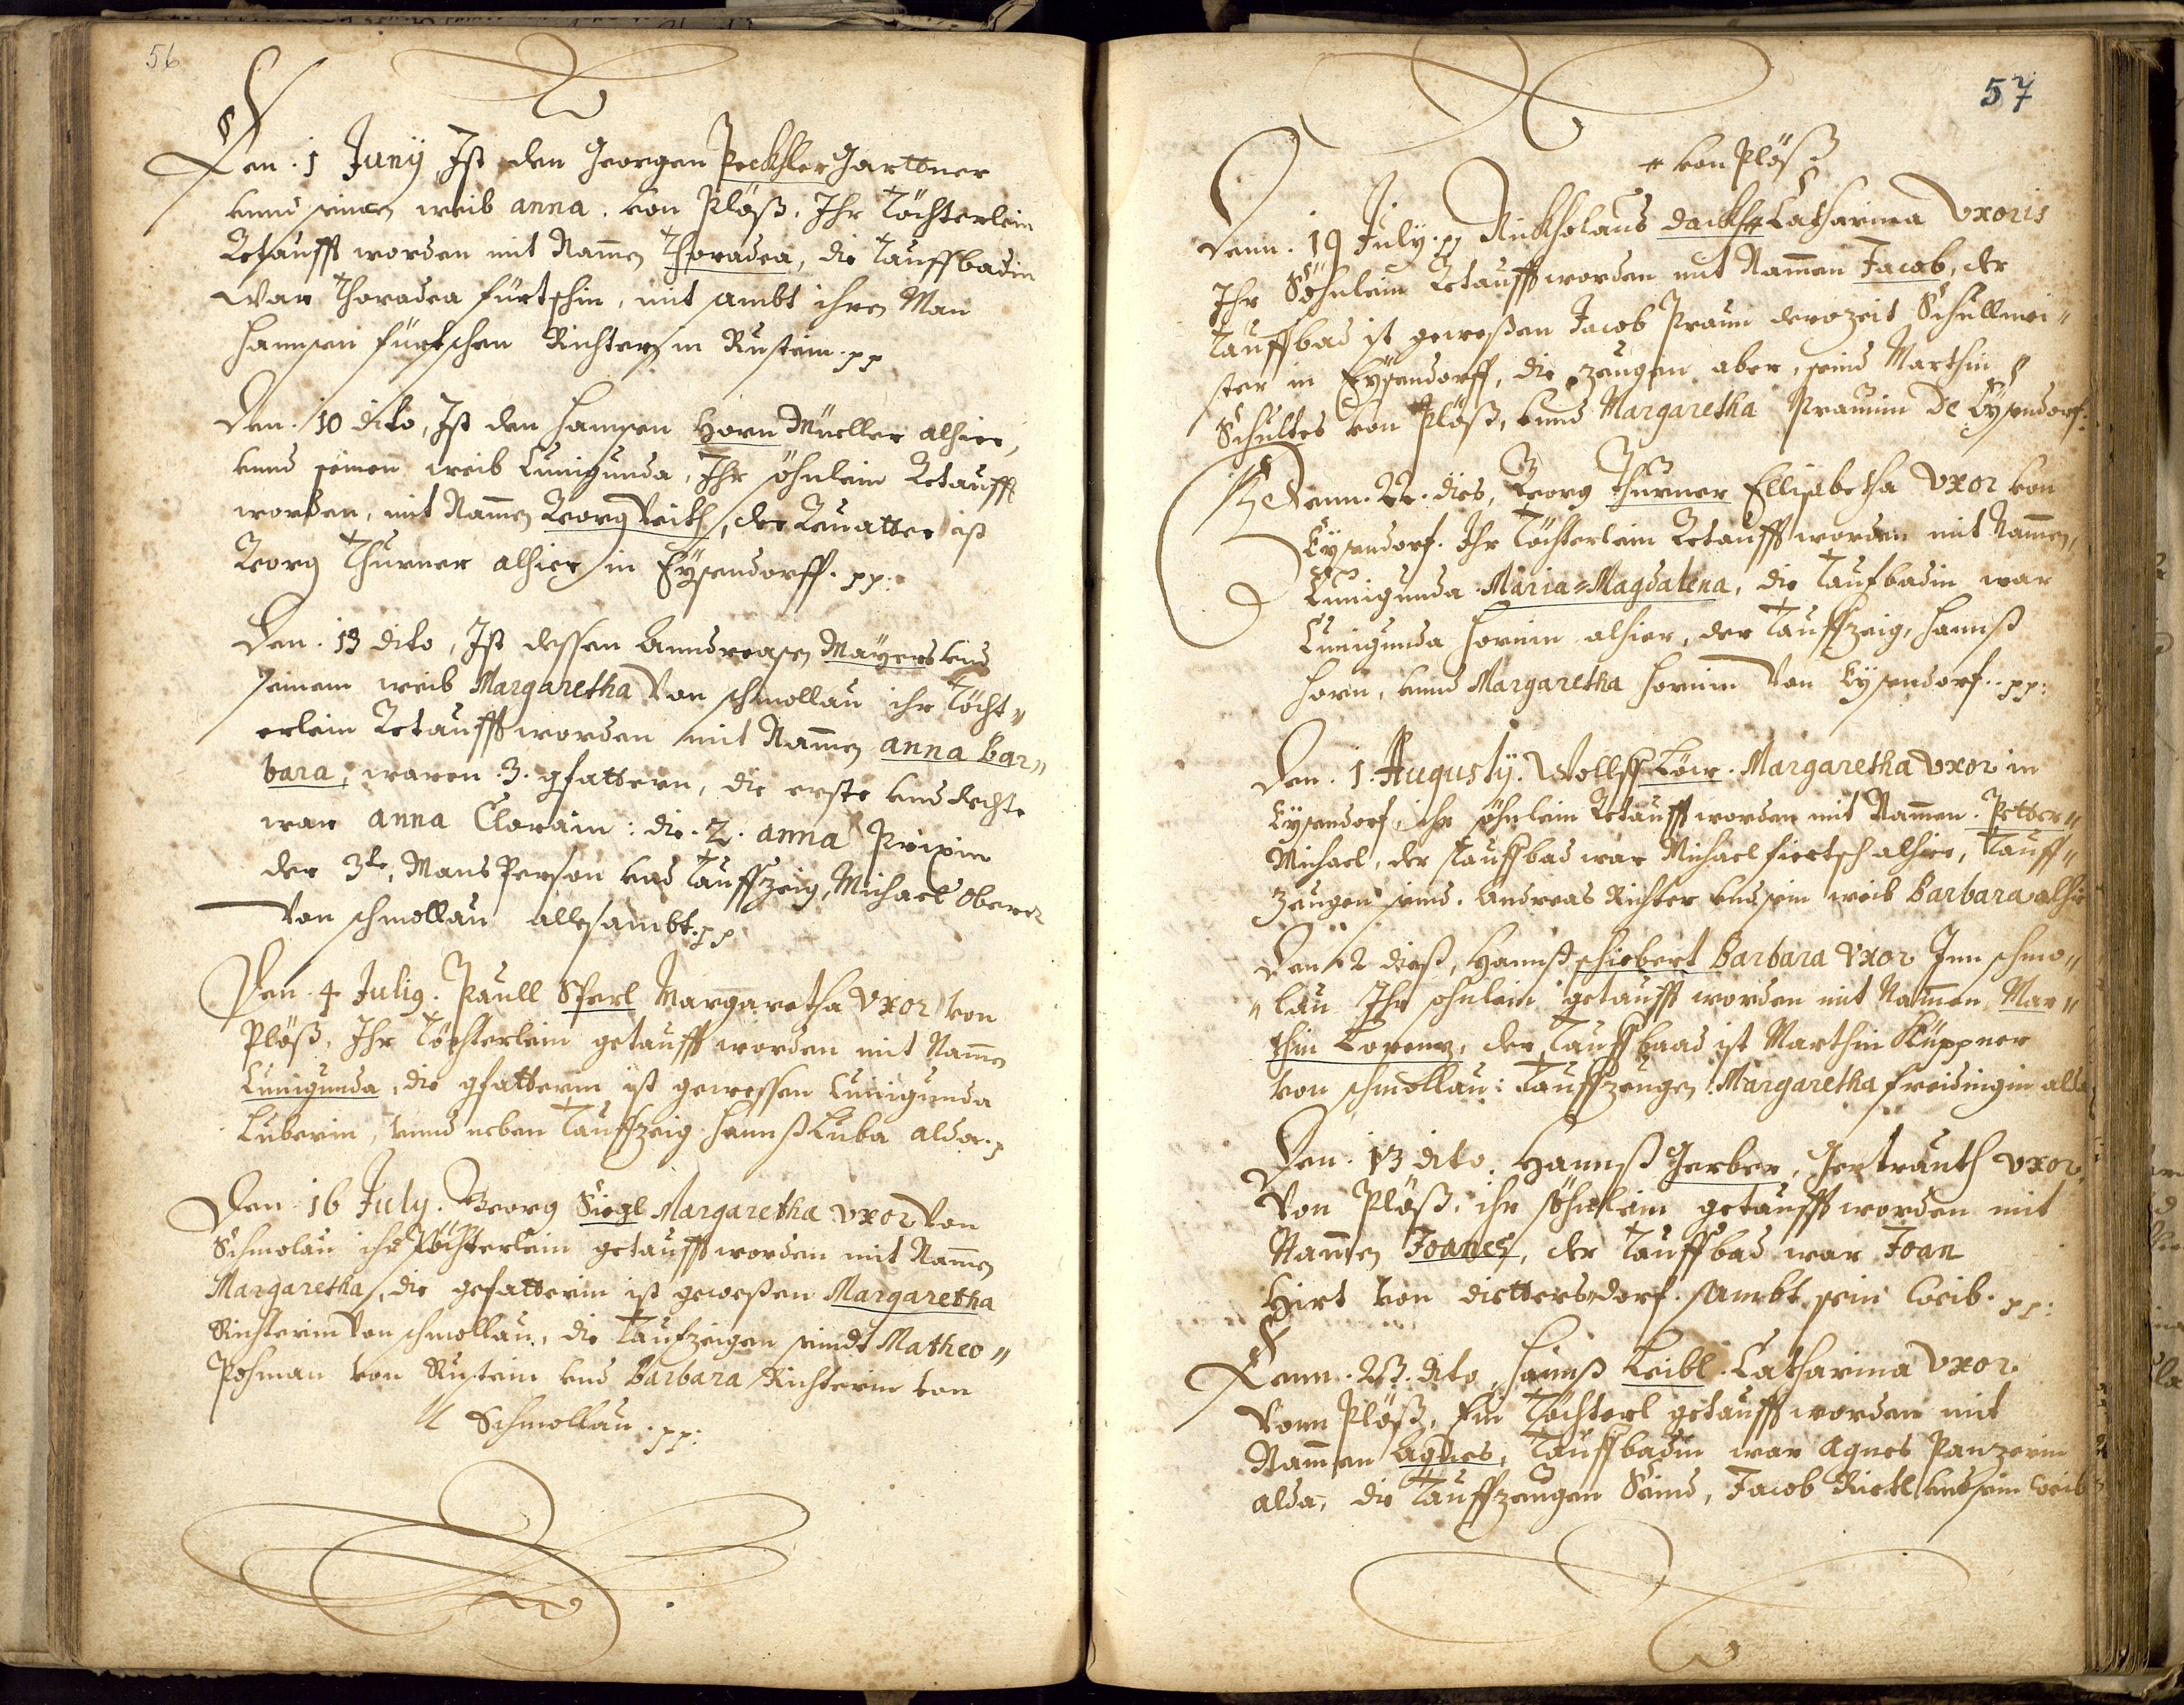 56
Den . 1 Junÿ Ist den Georgen Peckhler Garttner
vnnd seinen weib anna . von Plöß . Ihr Töchterlein
Getaufft worden mit Namen Thoradea, die Tauffbadin
War Thoradea fürtschin, mit sambt ihren Man
Hannsen fürtschen Richters in Rustein . pp
Den . 10 dito, Ist den Hannsen Horn Müeller alhier,
vnnd seinen weib Cunigunda, Ihr söhnlein Getaufft
worden, mit Namen Georg Veith, der Geuatter ist
Georg Thurner alhier in Eÿsendorff . pp:
Den . 13 dito, Ist dessen Anndreasen Maÿers vnd
seinem weib Margaretha von schmollau ihr Töcht"
erlein Getaufft worden mit Namen anna Bar"
bara, waren . 3 . gfattern, die erste vnd rechte
war anna Clorain : die . 2 . anna Prixin
der 3te, Mans Person vnd Tauffzeig, Michael Oberer
von schmollau alle sambt . pp
Den . 4 Julig . Paull Sferl Margaretha Vxor von
Plöß, Ihr Töchterlein getaufft worden mit Namen
Cunigunda, die gfatterin ist gewessen Cunigunda
Luberin, vnnd neben Tauffzeig Hannß Luba alda . p
Den . 16 July . Georg Siegl Margaretha vxor von
Schmolau ihr Töchterlein getaufft worden mit Namen
Margaretha, die gefatterin ist gewesßen Margaretha
Richterin von schmollau, die Taufzeigen seindt Matheo"
Pehman von Rustein vnd Barbara Richterin von
Schmollau . pp:
57
von Plöß
Denn . 19 July . pp Nickholaus dackh Catharina Vxoris
Ihr Söhnlein Getaufft worden mit Namen Jacob, der
Tauffbad ist geweßen Jacob Praun derozeit Schullmei"
ster in Eÿsendorff, die zeugen aber, seind Marthin
Schultes von Plöß, vnnd Margaretha Praunin De Eÿsendorf:
Denn . 22 . dies, Georg Thurner Ellisabetha Vxor von
Eysendorf . Ihr Töchterlein Getaufft worden mit Namen,
Cunigunda Maria=Magdalena, die Taufbadin war
Cunigunda Hornin alhier, der Tauffzeig, Hannß
Horn, vnnd Margaretha Hornin von Eysendorf . . pp:
Den . 1 . Augustÿ . Wolff Löw . Margaretha vxor in
Eysendorf, ihr söhnlein Getaufft worden mit Namen . Petter"
Michael, der Tauffbad war Michael fiertsch alhier, Tauff"
Zeugen seind . Andreas Richter vnd sein weib Barbara alhie
Den 2 dieß, Hannß schiebert Barbara Vxor Inn schmo"
"lau Ihr sohnlein getaufft worden mit Namen Mar"
thin Lorenz, der Tauffbaad ist Marthin Küppner
von schmollau : Tauffzeugen Margaretha freidingin alda
Den . 13 dito . Hannß Gerber, Gertrauth vxor
von Plöß, ihr söhnlein getaufft worden mit
Namen Joanes, der Tauffbad war Joan
Hirt von dietterstdorf . sambt sein Weib . pp:
Denn . 23 . dito, Hannß Leibl . Catharina vxor
vonn Plöß, Ein Töchterl getaufft worden mit
Namen Agnes, Tauffbadin war Agnes Panzerin
alda, die Tauffzeugen Seind, Jacob Rietl vnd sein Weib